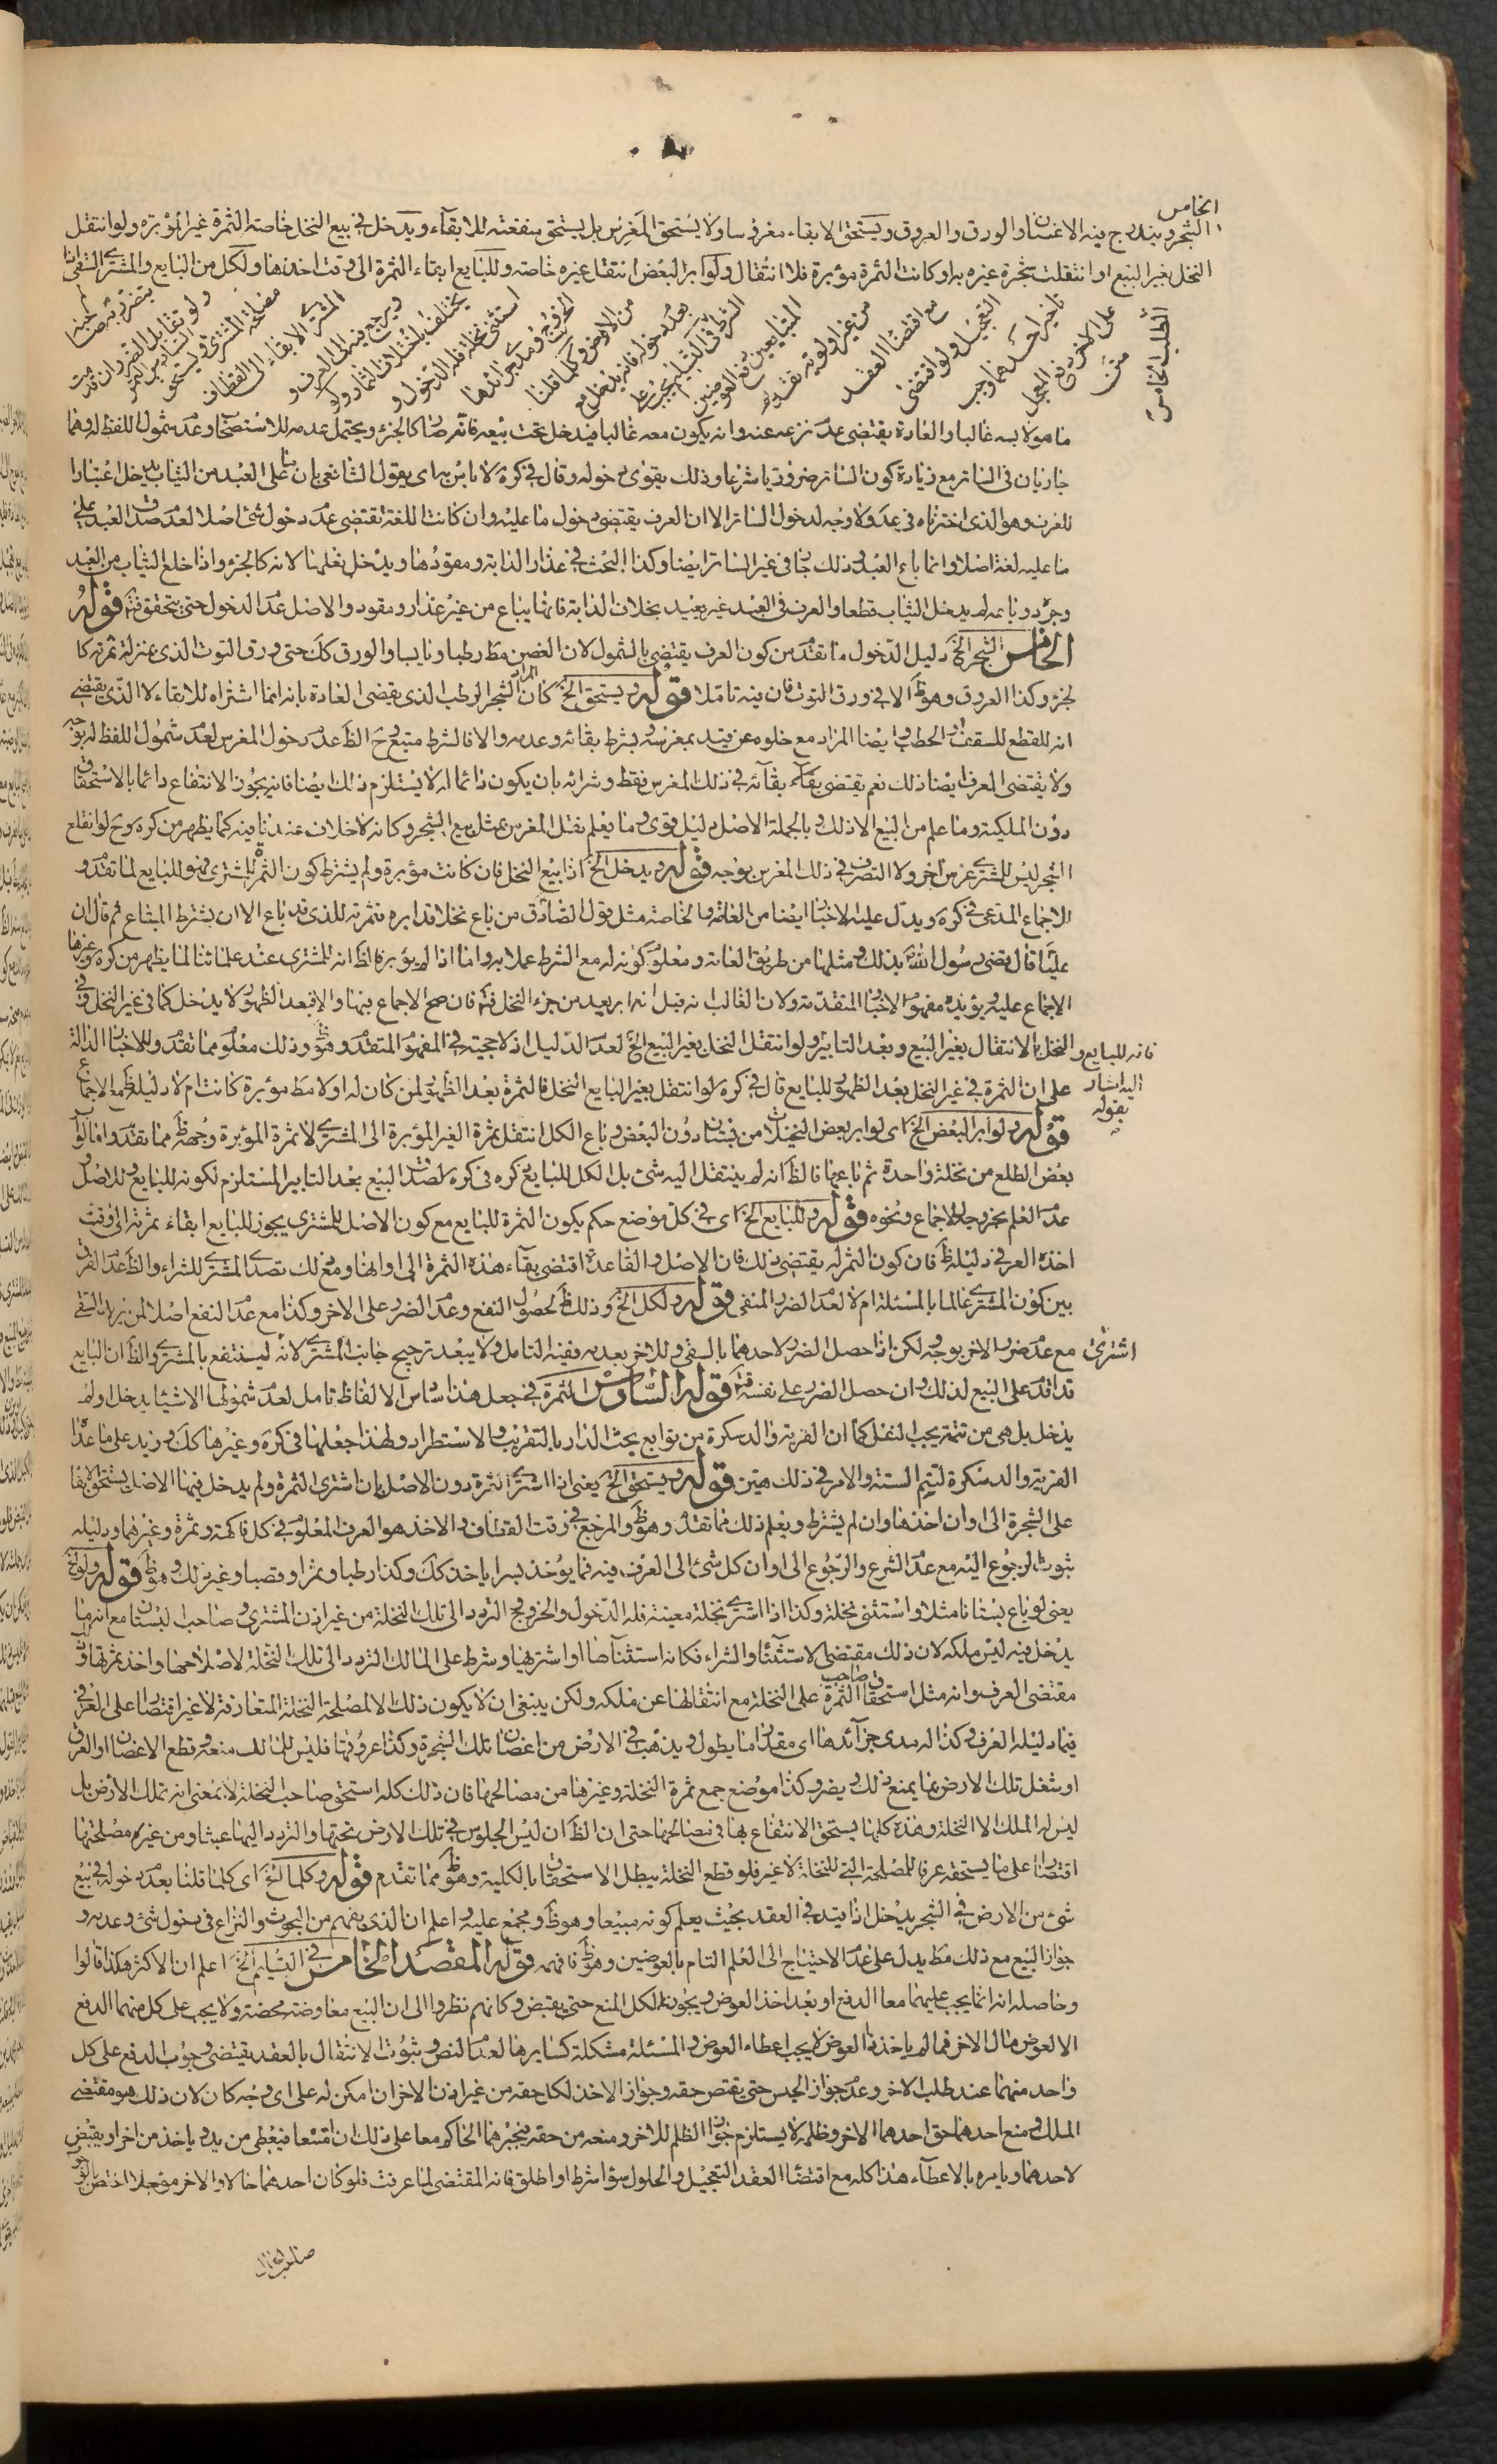 الخامس
الشجر ويندرج فيه الاغصان والورق والعروق ويستحق الابقاء مغروسا ولا يستحق المغرس بل يستحق منفعته للابقاء ويدخل في بيع النخل خاصة الثمرة غير المؤبرة ولو انتقل
النخل بغير البيع او انتقلت شجرة غيره به او كانت الثمرة مؤبرة فلا انتقال ولو ابر البعض انتقل غيره خاصة وللبايع ابقاء الثمرة الى وقت اخذها ولكل من البايع والمشتري السقي ان
المشتري الابقاء الى القطاف
ويرجع فيه الى العرف و
يختلف باختلاف الثمار ولو
استثنى نخلة فله الدخول و
الخروج ومدى جرائدها
من الارض وكلما قلنا
بعدم دخوله فانه يدخل مع
الشرط في التسليم يجب على
المتبايعين دفع العوضين
من غير اولوية تقديم
مع اقتضاء العقد
التعجيل ولو اقتضى
تاخير احدهما وجب
على الاخر دفع المعجل
المطلب الخامس
ما هو لابسه غالبا والعادة يقتضي عدم نزعه عنه وانه يكون معه غالبا فيدخل تحت بيعه فانه صار كالجزء ويحتمل عدمه للاستصحاب وعدم شمول اللفظ له وهما
جاريان في الساتر مع زيادة كون الساتر ضروريا شرعا وذلك يقوى دخوله وقال في كره لا باس به اى بقول الشافعي بان ما على العبد من الثياب يدخل اعتبارا
للعرف وهو الذى اخترناه في عد ولا وجه لدخول الساتر الا ان العرف يقتضي دخول ما عليه وان كانت اللغة تقتضي عدم دخول شئ اصلا لعدم صدق العبد على
ما عليه لغة اصلا وانما باع العبد وذلك جار في غير الساتر ايضا وكذا البحث في عذار الدابة ومقودها ويدخل نعلها لانه كالجزء واذا خلع الثياب من العبد
وجرد وباعه لم يدخل الثياب قطعا والعرف في العبد غير بعيد بخلاف الدابة فانها يباع من غير عذار ومقود والاصل عدم الدخول حتى يتحقق فتم قوله
الخامس الشجر الخ دليل الدخول ما تقدم من كون العرف يقتضي بالشمول لان الغصن مط رطبا ويابسا والورق كك حتى ورق التوت الذى بمنزلة ثمرته كا
لجزء وكذا العروق وهو ظ الا في ورق التوت فان فيه تاملا قوله ويستحق الخ كان المراد الشجر الرطب الذى يقضي العادة بانه انما اشتراه للابقاء لا الذى يقتضي
انه للقطع للسقف والحطب وايضا المراد مع خلوه عن قيد بمغرسه وبشرط بقائه وعدمه والا فالشرط متبع وح الظ عدم دخول المغرس لعدم شمول اللفظ له بوجه
ولا يقتضي العرف ايضا ذلك نعم يقتضي بقاءه بقائه في ذلك المغرس فقط وشرائه بان يكون دائما له لا يستلزم ذلك ايضا فانه يجوز الانتفاع دائما بالاستحقاق
دون الملكية وما علم من البيع الا ذلك وبالجملة الاصل دليل قوى وما يعلم نقل المغرس بمثل بيع الشجر وكانه لا خلاف عندنا فيه كما يظهر من كره وح لو انقلع
الشجر ليس للمشتري غرس اخر ولا التصرف في ذلك المغرس بوجه قوله ويدخل الخ اذا بيع النخل فان كانت مؤبرة ولم يشترط كون الثمرة للمشتري فهو للبايع لما تقدم و
الاجماع المدعى في كره ويدل عليه الاخبار ايضا من العامة والخاصة مثل قول الصادق من باع نخلا قد ابره فثمرته للذى قد باع الا ان يشترط المبتاع ثم قال ان
عليا قال قضى رسول الله بذلك ومثلها من طريق العامة ومعلوم كونه له مع الشرط عملا به واما اذا لم يؤبر فالظ انه للمشترى عند علمائنا لما يظهر من كره وغيرها
الاجماع عليه ويؤيده مفهوم الاخبار المتقدمة ولان الغالب انه قبل انه ابر يعد من جزء النخل فتم فان صح الاجماع فيها والا فبعد الظهور لا يدخل كما في غير النخل وفي
النخل بالانتقال بغير البيع وبعد التابير ولو انتقل النخل بغير البيع الخ لعدم الدليل اذ لا حجية في المفهوم المتقدم وهو ظ وذلك معلوم مما تقدم وللاخبار الدالة
فانه للبايع و
اليه اشار
بقوله
على ان الثمرة في غير النخل بعد الظهور للبايع قال في كره لو انتقل بغير البيع النخل فالثمرة بعد الظهور لمن كان له اولا مط مؤبرة كانت ام لا دليله ظ مع الاجماع
قوله ولو ابر البعض الخ اى لو ابر بعض النخيلات من بستان دون البعض وباع الكل انتقل ثمرة الغير المؤبرة الى المشتري لا ثمرة المؤبرة وجهه ظ مما تقدم واما لو ابر
بعض الطلع من نخلة واحدة ثم باعها فالظ انه لم ينتقل اليه شئ بل الكل للبايع كره في كره لصدق البيع بعد التابير المستلزم لكونه للبايع وللاصل و
عدم العلم بخروجه بالاجماع ونحوه قوله وللبايع الخ اى في كل موضع حكم يكون الثمرة للبايع مع كون الاصل للمشترى يجوز للبايع ابقاء ثمرته الى وقت
اخذه العرفي دليله ظ فان كون الثمر له يقتضي ذلك فان الاصل والقاعدة اقتضي بقاء هذه الثمرة الى اوانها ومع ذلك تصدى المشتري للشراء والظ عدم الفرق
بين كون المشتري عالما بالمسئلة ام لا لعدم الضرر المنفى قوله ولكل الخ وذلك ظ لحصول النفع وعدم الضرر على الاخر وكذا مع عدم النفع اصلا لمن يريد السقي
مع عدم ضرر الاخر بوجه لكن اذا حصل الضرر لاحدهما بالسقي وللاخر بعدمه ففيه التامل ولا يبعد ترجيح جانب المشتري لانه لينتفع بالمشترى والظ ان البايع
اشترى
قد اقدم على البيع لذلك وان حصل الضرر على نفسه فتم قوله السادس الثمرة في جعل هذا سادس الالفاظ تامل لعدم شمولها لاشياء يدخل اولم
يدخل بل هي من تتمة يجب لنقل كما ان القرية والدسكرة من توابع بحث الدار بالتقريب والاستطراد ولهذا جعلها في كره وغيرها كك وزيد على ما عدا
القرية والدسكرة لتتم الستة والامر في ذلك هين قوله ويستحق الخ يعنى اذا اشترى الثمرة دون الاصل بان اشترى الثمرة ولم يدخل فيها الاصل يستحق الابقاء
على الشجرة الى اوان اخذها وان لم يشترط ويعلم ذلك مما تقدم وهو ظ والمرجع في وقت القطاف والاخذ هو العرف المعلوم في كل فاكهة وثمرة وغيرها ودليله
ثبوت الرجوع اليه مع عدم الشرع والرجوع الى اوان كل شئ الى العرف فيه فما يؤخذ بسرا ياخذ كك وكذا رطبا وتمرا وقصبا وغير ذلك وهو ظ قوله ولو الخ
يعنى لو باع بستانا مثلا واستثنى نخلة وكذا اذا اشترى نخلة معينة فله الدخول والخروج التردد الى تلك النخلة من غير اذن المشترى وصاحب البستان مع انه ما
يدخل فيه ليس ملكه لان ذلك مقتضى الاستثناء والشراء فكانه استثناها او اشتريها وشرط على المالك التردد الى تلك النخلة لاصلاحها واخذ ثمرتها و
مقتضى العرف وانه مثل استحقاق صاحب الثمرة على النخلة مع انتقالها عن ملكه ولكن ينبغى ان لا يكون ذلك الا لمصلحة النخلة المتعارفة لا غير اقتصارا على العرف
فيما دليله العرف وكذا له مدى جرائدها اى مقدار ما يطول ويذهب في الارض من اغصان تلك الشجرة وكذا عروقها فليس للمالك منعه وقطع الاغصان او العرق
او شغل تلك الارض بما يمنع ذلك ويضر وكذا موضع جمع ثمرة النخلة وغيرها من مصالحها فان ذلك كله استحق صاحب النخلة لا بمعنى انه تملك الارض بل
ليس له الملك الا النخلة وهذه كلها يستحق الانتفاع بها في مصالحها حتى ان الظ ان ليس الجلوس في تلك الارض تحتها والتردد اليها عبثا ومن غيره مصلحتها
اقتصارا على ما يستحقه عرفا للمصلحة التى للنخلة لا غير فلو قطع النخلة يبطل الاستحقاق بالكلية وهو ظ مما تقدم قوله وكلما الخ اى كلما قلنا بعدم دخوله في بيع
شئ من الارض في الشجر يدخل اذا قيد في العقد بحيث يعلم كونه مبيعا وهو ظ ومجمع عليه واعلم ان الذى يفهم من البحوث والنزاع في دخول شئ وعدمه و
جواز البيع مع ذلك مط يدل على عدم الاحتياج الى العلم التام بالعوضين وهو ظ فافهم قوله المقصد الخامس في التسليم الخ اعلم ان الاكثر هكذا قالوا
وحاصله انه انما يجب عليهما معا الدفع او بعد اخذ العوض ويجوز لكل المنع حتى يقبض وكانهم نظروا الى ان البيع معاوضة محضة ولا يجب على كل منهما الدفع
الا لعوض مال الاخر فما لم ياخذ العوض لا يجب اعطاء العوض والمسئلة مشكلة كسايرها لعدم النص وثبوت الانتقال بالعقد يقتضي وجوب الدفع على كل
واحد منهما عند طلب الاخر وعدم جواز الحبس حتى يقتص حقه وجواز الاخذ لكل حقه من غير اذن الاخر ان امكن له على اى وجه كان لان ذلك هو مقتضى
الملك ومنع احدهما حق احدهما الاخر وظلمه لا يستلزم جواز الظلم للاخر ومنعه من حقه فيجبرهما الحاكم معا على ذلك ان امتنعا فيعطى من يد وياخذ من اخر او يقبض
لاحدهما ويامره بالاعطاء هذا كله مع اقتضاء العقد التعجيل والحلول سواء شرط او اطلق فانه المقتضى لما عرفت فلو كان احدهما حالا والاخر مؤجلا اختص